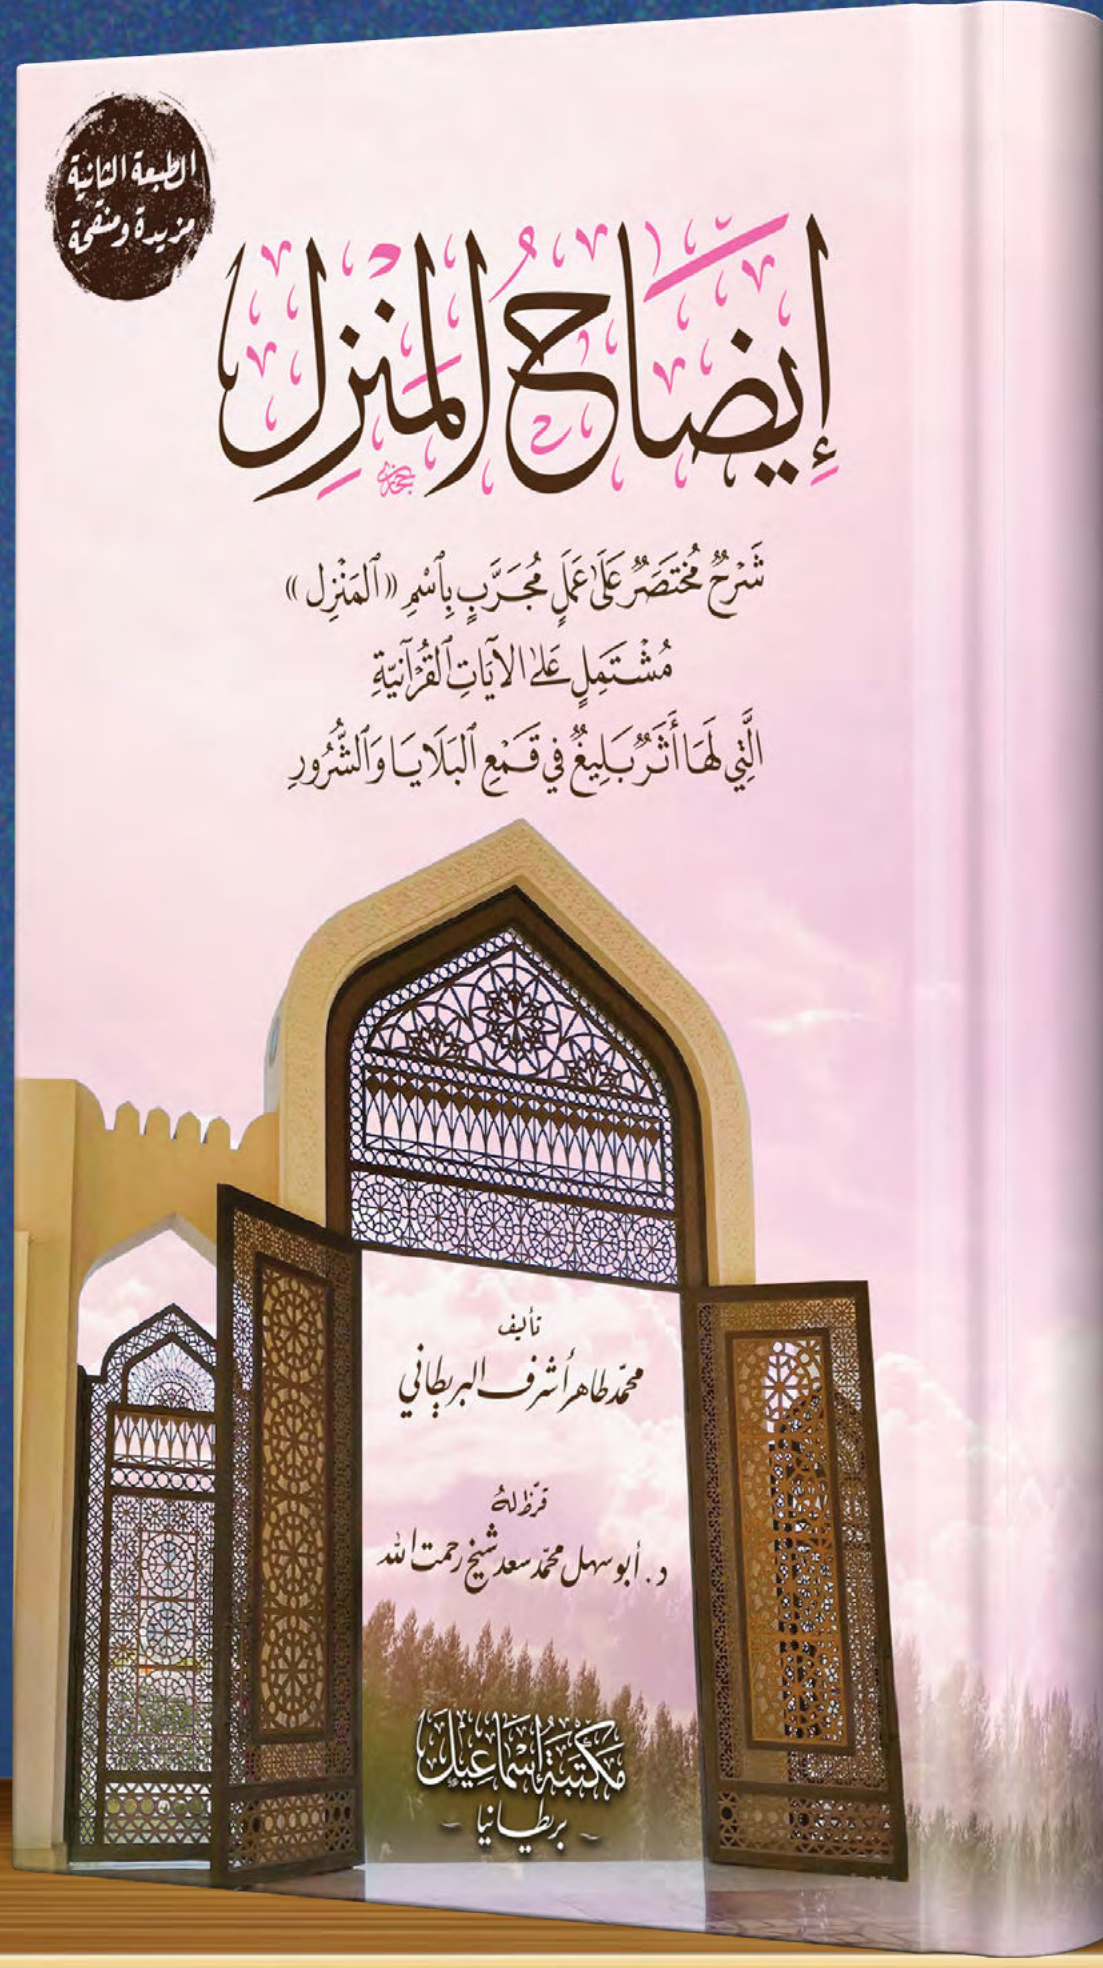 الطبعة الثانية
مزيدة ومنقحة
إِيضَاحُ المَنْزِلِ
شَرْحٌ مُخْتَصَرٌ عَلَىٰ عَمَلٍ مُجَرَّبٍ بِٱسْمِ «ٱلمَنْزِل»
مُشْتَمِلٍ عَلىٰ الآيَاتِ ٱلقُرْآنيّةِ
الَّتِي لَهَا أَثَرٌ بَلِيغٌ في قَمْعِ ٱلبَلَايَا وَٱلشُّرُورِ
تأليف
محمّد طاهر أشرف البريطاني
قرّظ له
د. أبو سهل محمّد سعد شيخ رحمت الله
مَكتَبَةُ إسْمَاعِيْل
- بريطانيا -